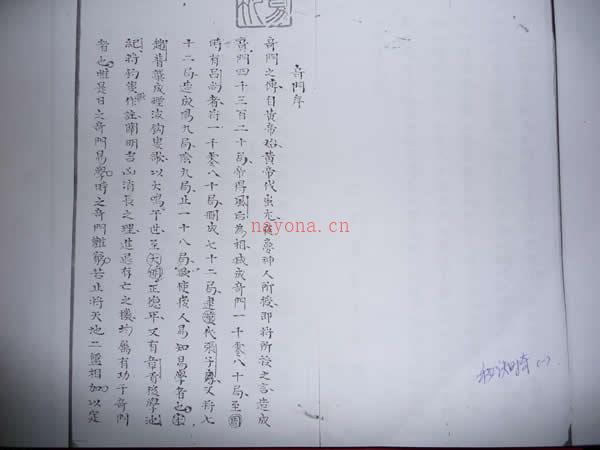 奇門序
奇門之傳自黄帝始黄帝代蚩尤夜夢神人所授即將所授之言造成
奇門四千三百二十局帝得風后為相减成奇門一千零八十局至周
時有呂尚者將一千零八十局刪成七十二局建漢代張子房又將七
十二局造成陽九局陰九局止一十八局欲使後人易知易學者也宋
趙普纂成理法鈎叟歌以大鳴于世至大明正德年又有章香隱學池
紀將鈎叟作註闡明吉凶消長之理進退存亡之機均屬有功于奇門
者也惟是日之奇門易學時之奇門難窮若止將天地二盤相加以定
nayona.cn